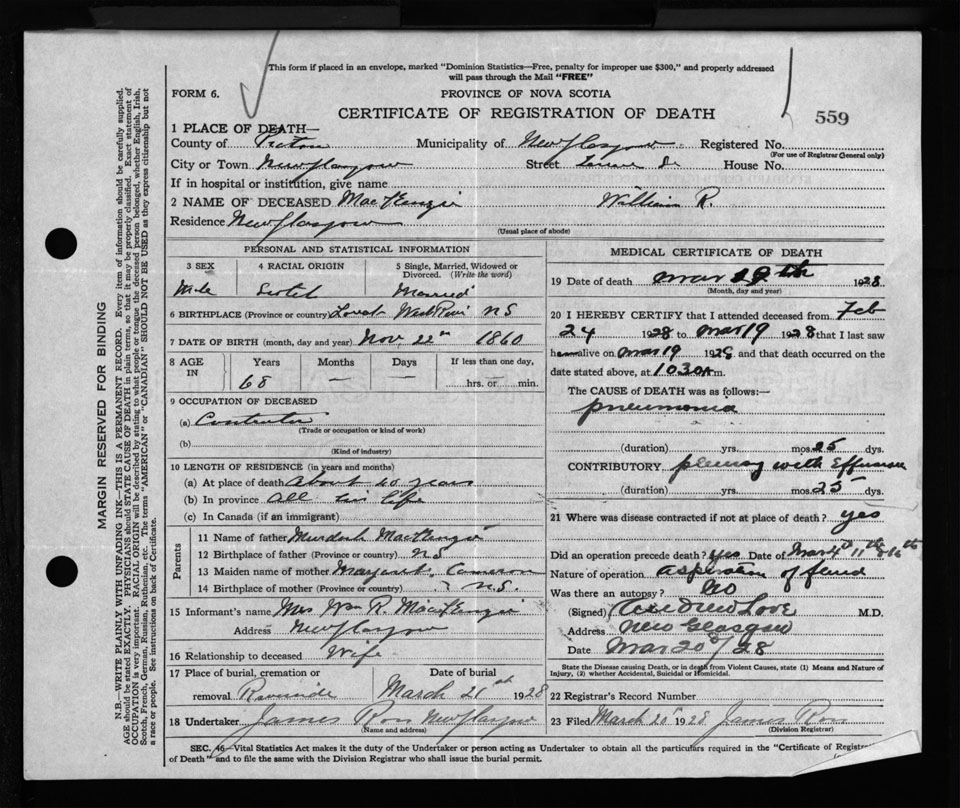 This form if placed in an envelope, marked "Dominion Statistics—Free, penalty for improper use $300," and properly addressed
will pass through the Mail "FREE"
FORM 6. PROVINCE OF NOVA SCOTIA
CERTIFICATE OF REGISTRATION OF DEATH 559
1 PLACE OF DEATH—
County of Pictou Municipality of New Glasgow Registered No.
(For use of Registrar General only)
City or Town New Glasgow Street House No.
If in hospital or institution, give name
2 NAME OF DECEASED MacKenzie William R.
Residence New Glasgow
(Usual place of abode)
PERSONAL AND STATISTICAL INFORMATION
3 SEX 4 RACIAL ORIGIN 5 Single, Married, Widowed or Divorced. (Write the word)
Male Scotch Married
6 BIRTHPLACE (Province or country) West River NS
7 DATE OF BIRTH (month, day and year) Nov 22nd 1860
8 AGE IN Years Months Days If less than one day,
68 — hrs. or min.
9 OCCUPATION OF DECEASED
(a) Contractor
(Trade or occupation or kind of work)
(b)
(Kind of industry)
10 LENGTH OF RESIDENCE (in years and months)
(a) At place of death About 40 years
(b) In province All his life
(c) In Canada (if an immigrant)
Parents
11 Name of father Murdoch MacKenzie
12 Birthplace of father (Province or country) NS
13 Maiden name of mother Margaret Cameron
14 Birthplace of mother (Province or country) N.S.
15 Informant's name Mrs Wm R. MacKenzie
Address New Glasgow
16 Relationship to deceased Wife
17 Place of burial, cremation or Date of burial
removal Riverside March 21st 1928
18 Undertaker James Ross New Glasgow
(Name and address)
MEDICAL CERTIFICATE OF DEATH
19 Date of death Mar 19th 1928
(Month, day and year)
20 I HEREBY CERTIFY that I attended deceased from Feb
24 1928 to Mar 19 1928 that I last saw
h alive on Mar 19 1928 and that death occurred on the
date stated above, at 10 30 A m.
The CAUSE OF DEATH was as follows:—
pneumonia
(duration) yrs. mos. 25 dys.
CONTRIBUTORY pleurisy with Effusion
(duration) yrs. mos. 25 dys.
21 Where was disease contracted if not at place of death? yes
Did an operation precede death? yes Date of Mar 4th 11th & 16th
Nature of operation Aspiration of fluid
Was there an autopsy? No
(Signed) Andrew Love M.D.
Address New Glasgow
Date Mar 20/28
State the Disease causing Death, or in death from Violent Causes, state (1) Means and Nature of
Injury, (2) whether Accidental, Suicidal or Homicidal.
22 Registrar's Record Number
23 Filed March 20 1928 James Ross
(Division Registrar)
SEC. 46—Vital Statistics Act makes it the duty of the Undertaker or person acting as Undertaker to obtain all the particulars required in the "Certificate of Registration
of Death" and to file the same with the Division Registrar who shall issue the burial permit.
MARGIN RESERVED FOR BINDING
N.B.—WRITE PLAINLY WITH UNFADING INK—THIS IS A PERMANENT RECORD. Every item of information should be carefully supplied.
AGE should be stated EXACTLY. PHYSICIANS should STATE CAUSE OF DEATH in plain terms, so that it may be properly classified. Exact statement of
OCCUPATION is very important. RACIAL ORIGIN will be described by stating to what people or tongue the deceased person belonged, whether English, Irish,
Scotch, French, German, Russian, Ruthenian, etc. The terms "AMERICAN" or "CANADIAN" SHOULD NOT BE USED as they express citizenship but not
a race or people. See instructions on back of Certificate.